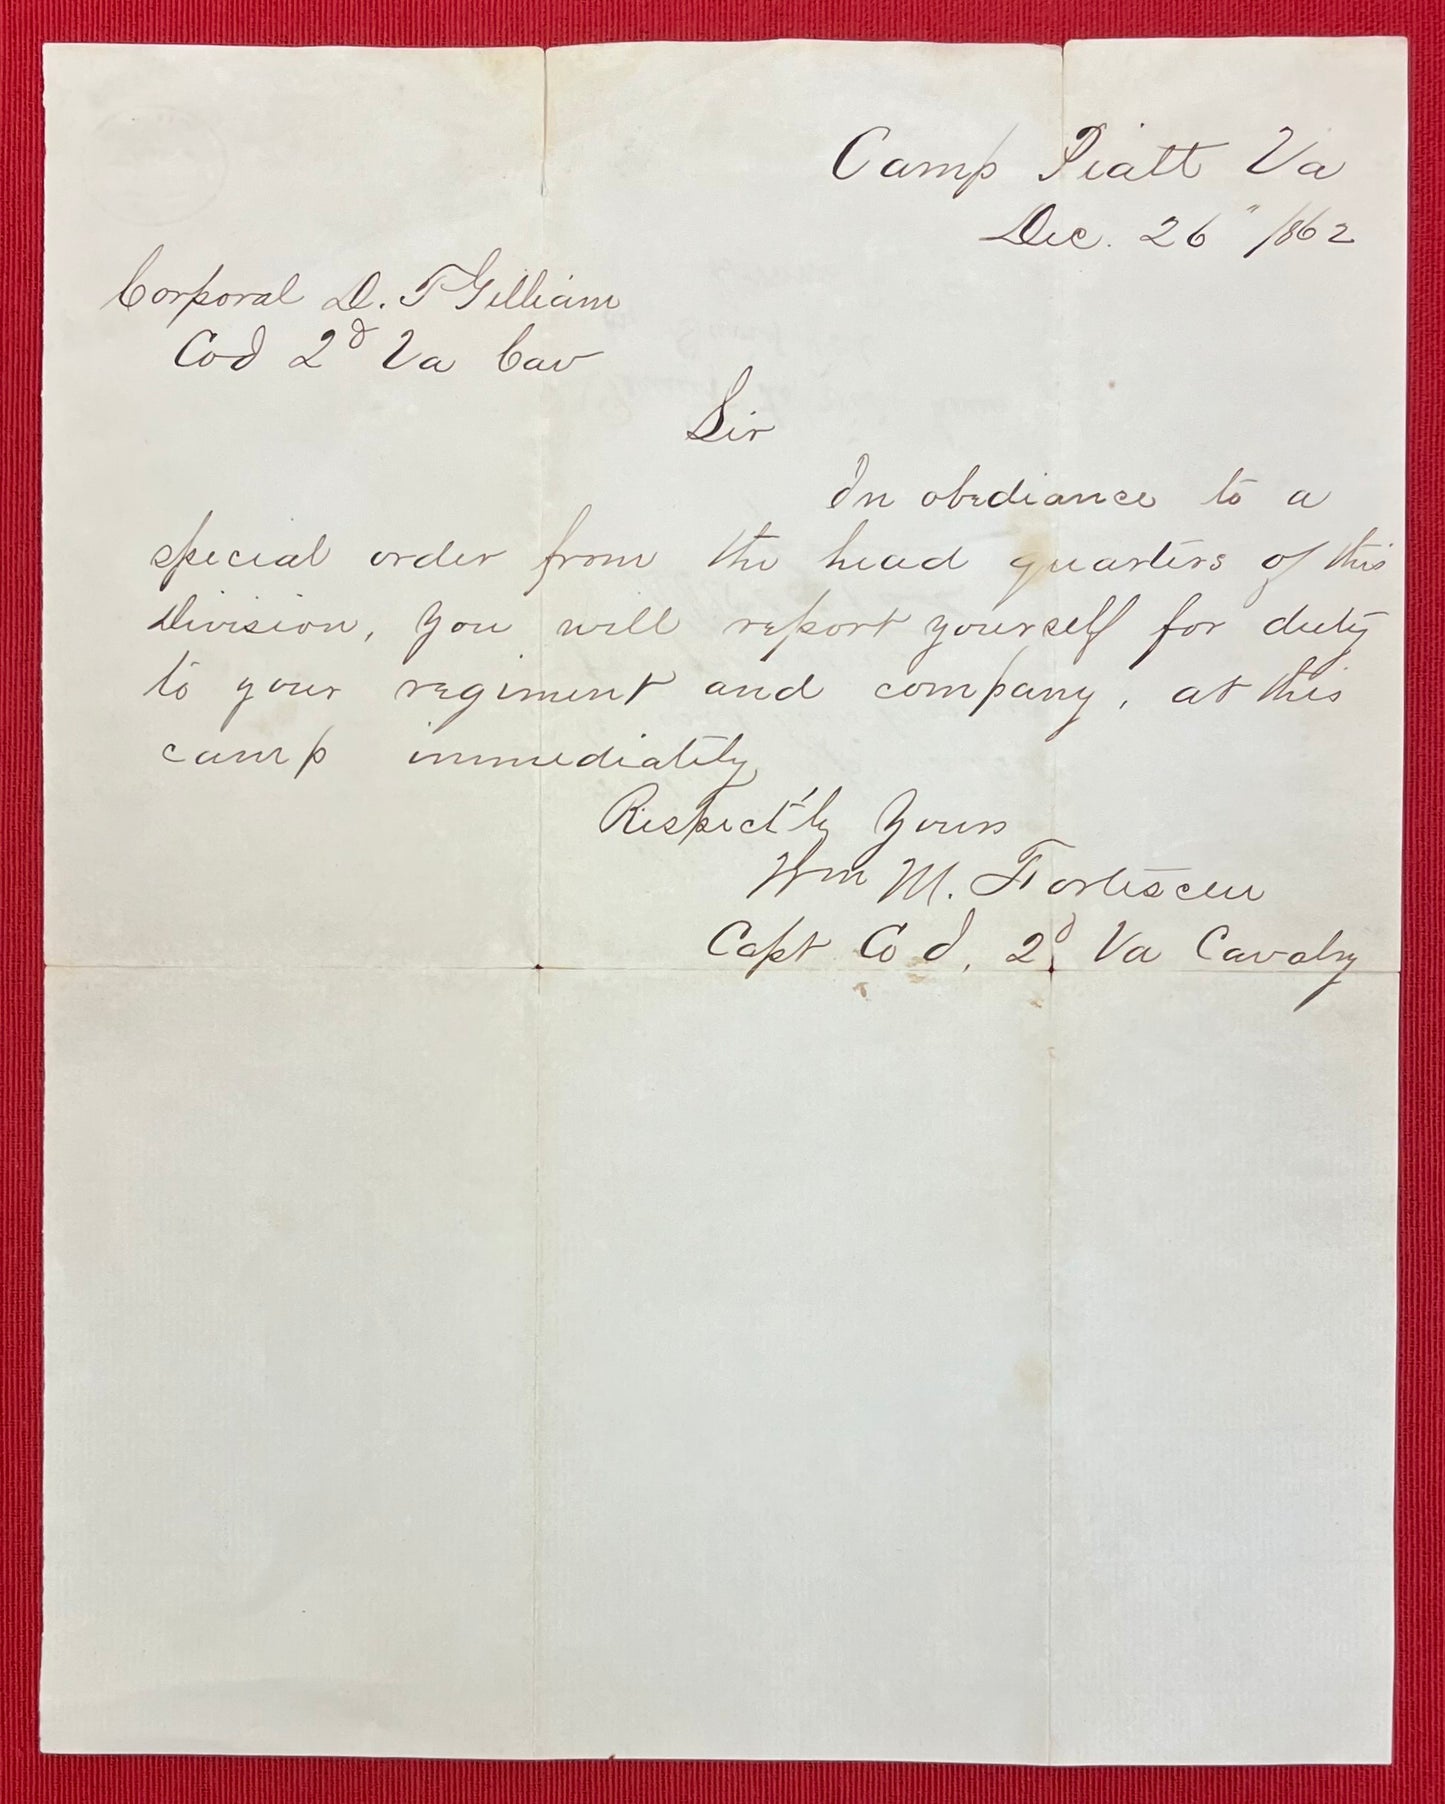 Camp Piatt Va
Dec. 26" 1862
Corporal D. T Gilliam
Co d 2d Va Cav
Sir
In obediance to a
special order from the head quarters of this
Division, you will report yourself for duty
to your regiment and company, at this
camp immediately
Respect'ly Yours
Wm M. Fortescue
Capt Co d, 2d Va Cavalry